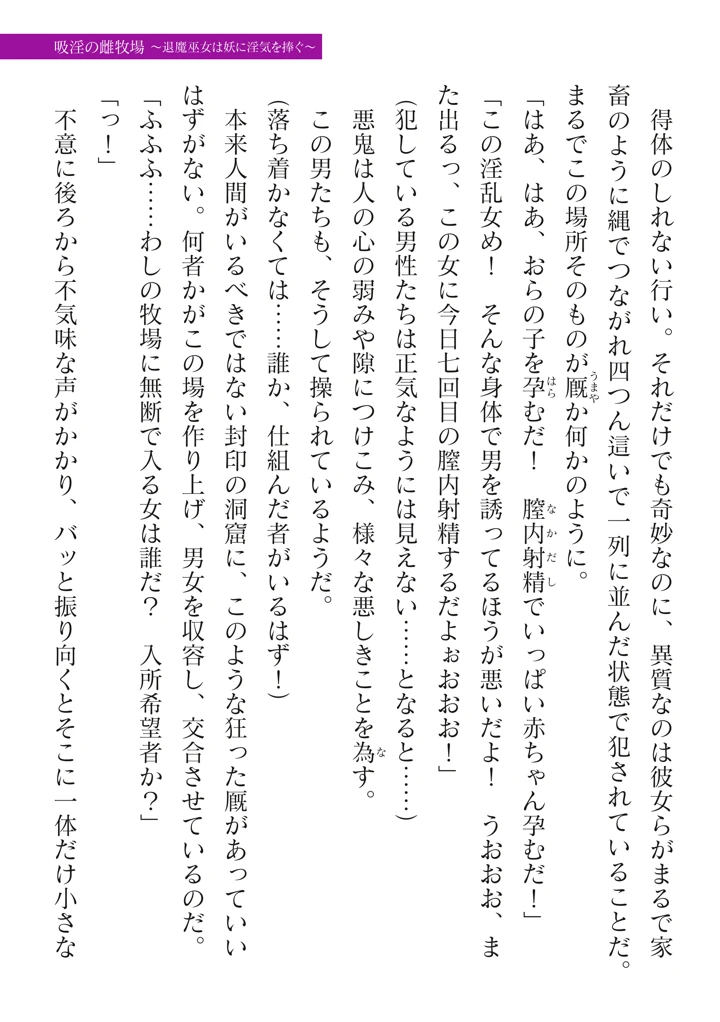 吸淫の雌牧場 ～退魔巫女は妖に淫気を捧ぐ～
得体のしれない行い。それだけでも奇妙なのに、異質なのは彼女らがまるで家
畜のように縄でつながれ四つん這いで一列に並んだ状態で犯されていることだ。
まるでこの場所そのものが厩か何かのように。
「はあ、はあ、おらの子を孕むだ！　膣内射精でいっぱい赤ちゃん孕むだ！」
「この淫乱女め！　そんな身体で男を誘ってるほうが悪いだよ！　うおおお、ま
た出るっ、この女に今日七回目の膣内射精するだよぉおおお！」
（犯している男性たちは正気なようには見えない……となると……）
悪鬼は人の心の弱みや隙につけこみ、様々な悪しきことを為す。
この男たちも、そうして操られているようだ。
（落ち着かなくては……誰か、仕組んだ者がいるはず！）
本来人間がいるべきではない封印の洞窟に、このような狂った厩があっていい
はずがない。何者かがこの場を作り上げ、男女を収容し、交合させているのだ。
「ふふふ……わしの牧場に無断で入る女は誰だ？　入所希望者か？」
「っ！」
不意に後ろから不気味な声がかかり、バッと振り向くとそこに一体だけ小さな